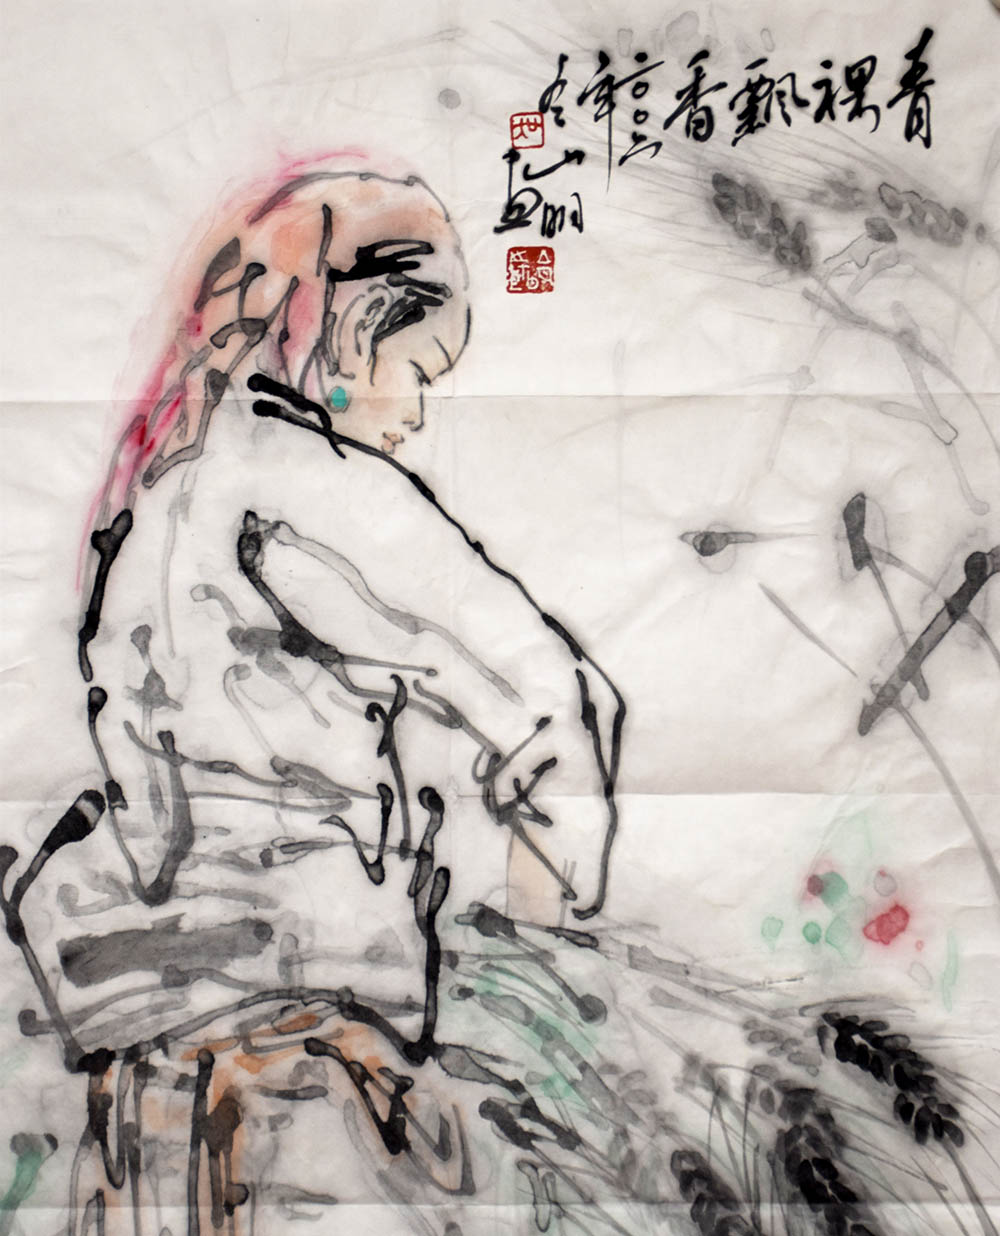 青稞飘香
二〇〇六年
冬
山明
畫